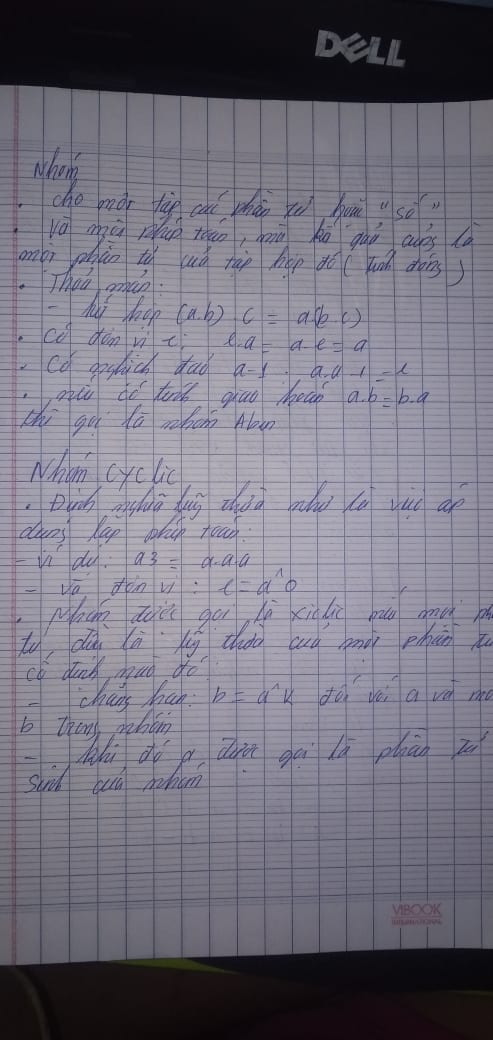 DELL
Nhóm
. cho một tập các phần tử hoặc "số"
. Và một phép toán, mà kết quả cũng là
một phần tử của tập hợp đó (tính đóng)
. Thoả mãn:
- kết hợp (a.b).c = a(b.c)
. Có đơn vị e: e.a = a.e = a
. Có nghịch đảo a-1 . a.a-1 = e
. nếu có tính giao hoán a.b = b.a
thì gọi là nhóm Aben
Nhóm cyclic
. Định nghĩa luỹ thừa như là việc áp
dụng lặp phép toán:
- ví dụ: a3 = a.a.a
- và đơn vị : e = a^0
. Nhóm được gọi là xiclic nếu mọi ph
tử đều là luỹ thừa của một phần tử
cố định nào đó:
- chẳng hạn: b = a^k đối với a và mọ
b trong nhóm
- khi đó a được gọi là phần tử
sinh của nhóm
VIBOOK
INTERNATIONAL